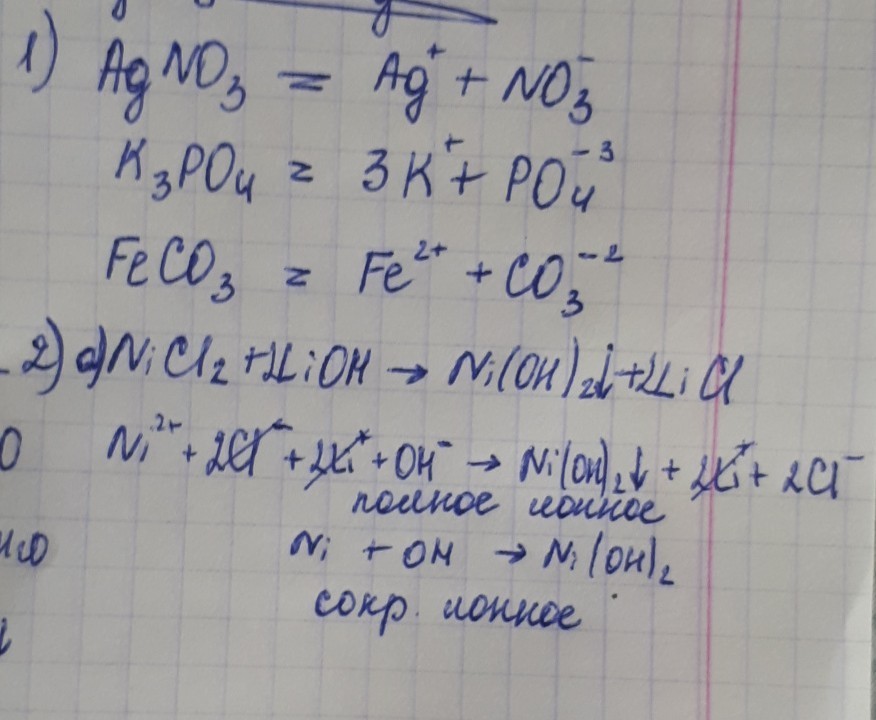 1) AgNO₃ = Ag⁺ + NO₃⁻
K₃PO₄ = 3K⁺ + PO₄⁻³
FeCO₃ = Fe²⁺ + CO₃⁻²
2) а) NiCl₂ + 2LiOH → Ni(OH)₂↓ + 2LiCl
Ni²⁺ + 2Cl⁻ + 2Li⁺ + OH⁻ → Ni(OH)₂↓ + 2Li⁺ + 2Cl⁻
полное ионное
Ni + OH → Ni(OH)₂
сокр. ионное